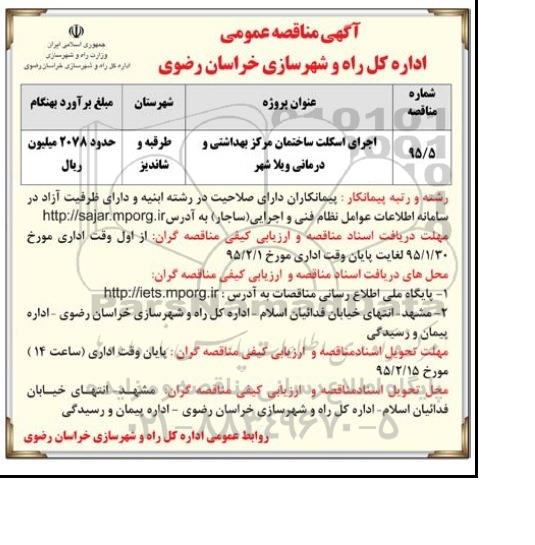 آگهی مناقصه عمومی
اداره کل راه و شهرسازی خراسان رضوی
جمهوری اسلامی ایران
وزارت راه و شهرسازی
اداره کل راه و شهرسازی خراسان رضوی
شماره مناقصه | عنوان پروژه | شهرستان | مبلغ برآورد بهنگام
۹۵/۵ | اجرای اسکلت ساختمان مرکز بهداشتی و درمانی ویلا شهر | طرقبه و شاندیز | حدود ۲۰۷۸ میلیون ریال
رشته و رتبه پیمانکار : پیمانکاران دارای صلاحیت در رشته ابنیه و دارای ظرفیت آزاد در
سامانه اطلاعات عوامل نظام فنی و اجرایی(ساجار) به آدرس http://sajar.mporg.ir
مهلت دریافت اسناد مناقصه و ارزیابی کیفی مناقصه گران: از اول وقت اداری مورخ
۹۵/۱/۳۰ لغایت پایان وقت اداری مورخ ۹۵/۲/۱
محل های دریافت اسناد مناقصه و ارزیابی کیفی مناقصه گران:
۱- پایگاه ملی اطلاع رسانی مناقصات به آدرس : http://iets.mporg.ir
۲- مشهد- انتهای خیابان فدائیان اسلام - اداره کل راه و شهرسازی خراسان رضوی -اداره
پیمان و رسیدگی
مهلت تحویل اسنادمناقصه و ارزیابی کیفی مناقصه گران : پایان وقت اداری (ساعت ۱۴ )
مورخ ۹۵/۲/۱۵
محل تحویل اسنادمناقصه و ارزیابی کیفی مناقصه گران: مشهد- انتهای خیابان
فدائیان اسلام- اداره کل راه و شهرسازی خراسان رضوی - اداره پیمان و رسیدگی
روابط عمومی اداره کل راه و شهرسازی خراسان رضوی
۰۲۱-۸۸۳۴۹۶۷۰-۵